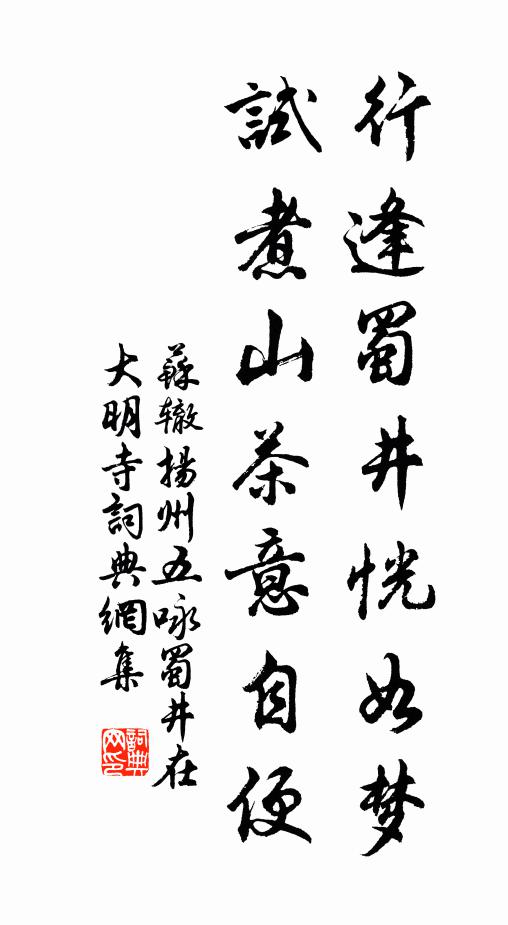 行逢蜀井恍如梦
試煮山茶意自便
蘇辙揚州五咏蜀井在
大明寺詞典網集
詞典网印